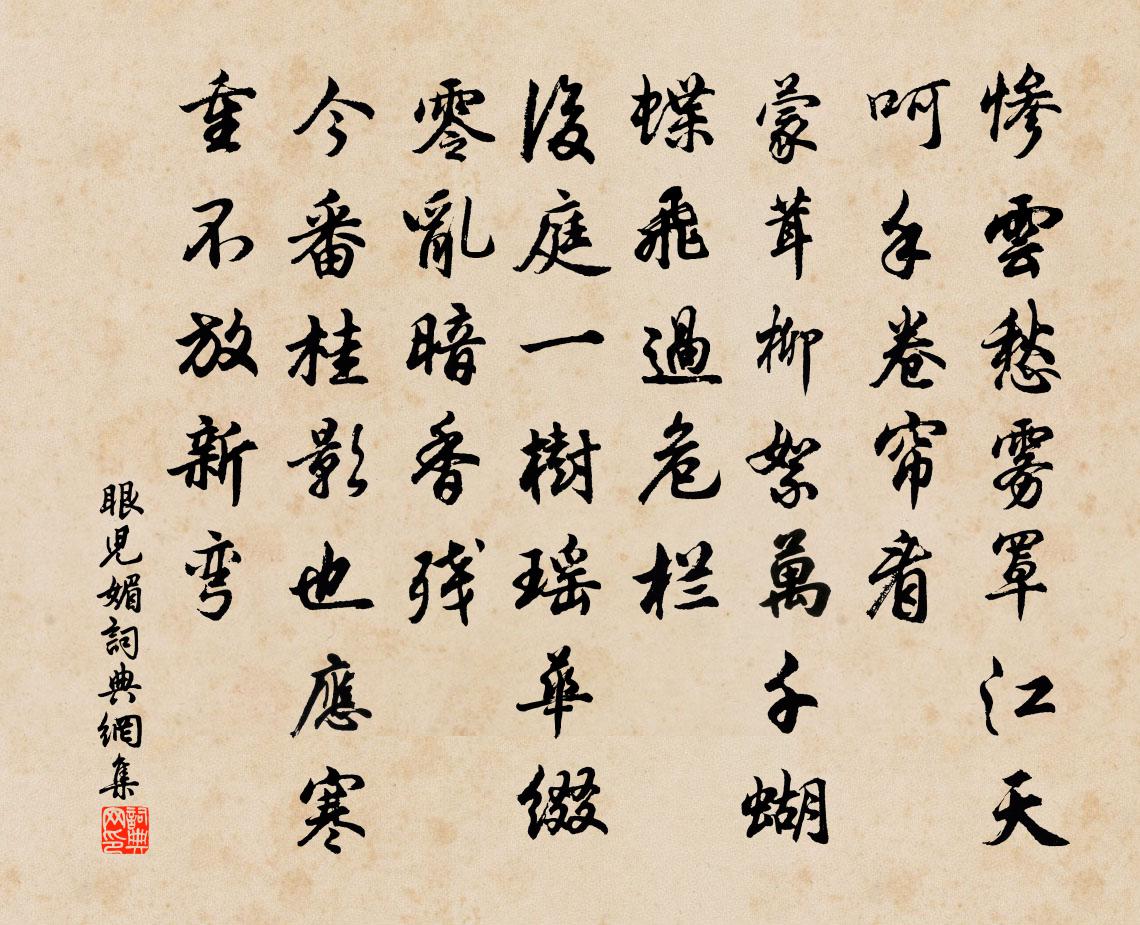 慘雲愁雾罩江天
呵手卷帘看
蒙茸柳絮萬千蝴
蝶飛過危栏
後庭一樹瑶華綴
零亂暗香残
今番桂影也應寒
重不放新弯
眼兒媚詞典網集
詞典网印